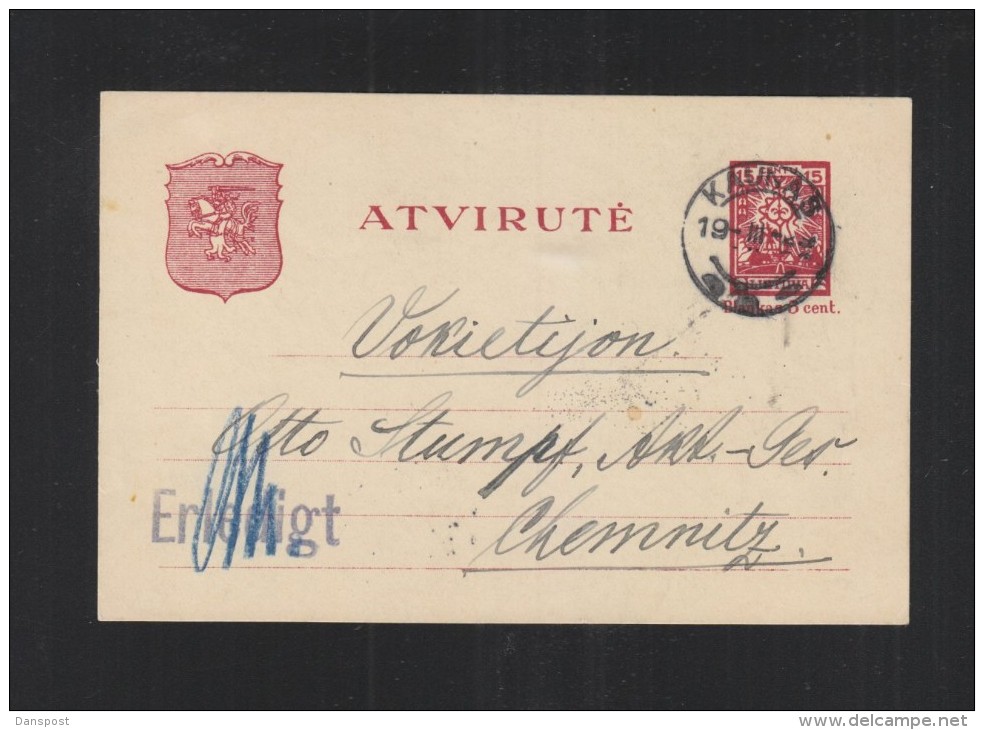 ATVIRUTĖ
15 CENT. 15
LIETUVA
KAUNAS
19-III
Blankas 3 cent.
Vokietijon.
Otto Stumpf, Akt.-Ges.
Erledigt
Chemnitz.
Danspost
delcampe.net